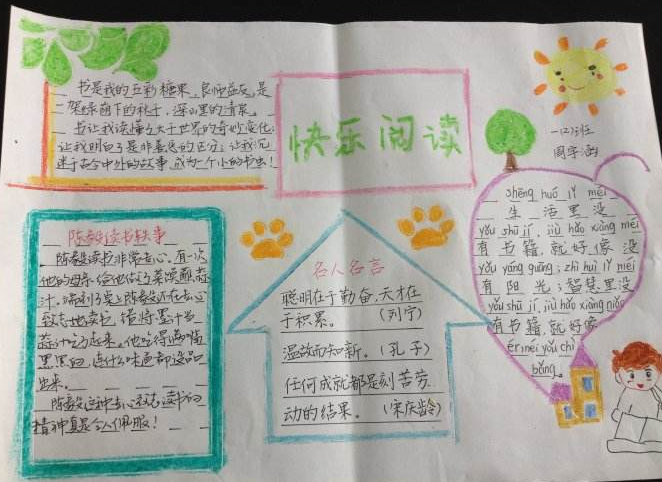 书是我的五彩糖果、良师益友,是
一架绿荫下的秋千,深山里的清泉。
书让我读懂了大千世界的奇妙变化;
让我明白了是非善恶的区分;让我沉
迷于古今中外的故事,成为一个小的书虫!
快乐阅读
一(2)班
周宇涵
陈毅读书轶事
陈毅读书非常专心,有一次,
他的母亲给他做了菜馍蘸蒜
汁。端到书桌上陈毅还在专心
致志地读书,错将墨汁当
蒜汁吃了起来。他吃得满嘴
黑黑的,连什么味道都没品
出来。
陈毅这种专心致志读书的
精神真是令人佩服!
名人名言
聪明在于勤奋,天才在
于积累。 (列宁)
温故而知新。(孔子)
任何成就都是刻苦劳
动的结果。 (宋庆龄)
shēng huó lǐ méi
生活里没
yǒu shū jí, jiù hǎo xiàng méi
有书籍,就好像没
yǒu yáng guāng; zhì huì lǐ méi
有阳光;智慧里没
yǒu shū jí, jiù hǎo xiàng niǎo
有书籍,就好像
ér méi yǒu chì
bǎng。